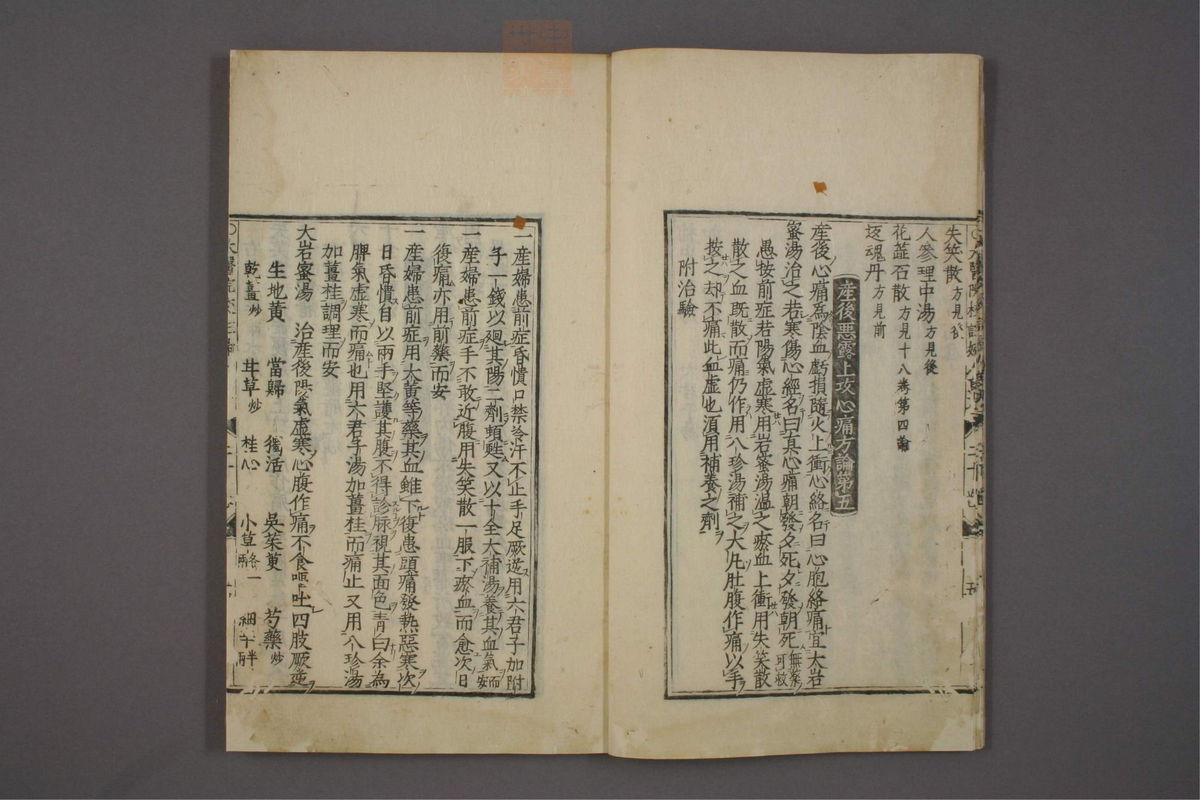 失笑散方見後
人參理中湯方見後
花蕋石散方見十八卷第四論
返魂丹方見前
産後惡露上攻心痛方論第五
産後心痛爲陰血虧損隨火上衝心絡名曰心胞絡痛宜大岩
蜜湯治之若寒傷心經名曰真心痛朝發夕死夕發朝死無藥可救
愚按前症若陽氣虛寒用岩蜜湯温之瘀血上衝用失笑散
散之血既散而痛仍作用八珍湯補之大凡肚腹作痛以手
按之却不痛此血虛也須用補養之劑
附治驗
一産婦患前症昏憒口禁冷汗不止手足厥逆用六君子加附
子一錢以廻其陽二劑頓甦又以十全大補湯養其血氣而安
一産婦患前症手不敢近腹用失笑散一服下瘀血而愈次日
復痛亦用前藥而安
一産婦患前症用大黃等藥其血雖下復患頭痛發熱惡寒次
日昏憒自以兩手堅護其腹不得診脉視其面色青曰余為
脾氣虛寒而痛也用六君子湯加薑桂而痛止又用八珍湯
加薑桂調理而安
大岩蜜湯 治産後陽氣虛寒心腹作痛不食嘔吐四肢厥逆
生地黃 當歸 獨活 吳茱萸 芍藥炒
乾薑炒 甘草炒 桂心 小草各一兩 細辛半兩